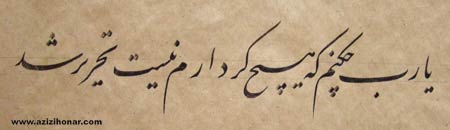 یارب چکنم که هیچ کردارم نیست تحریر شد
www.azizihonar.com